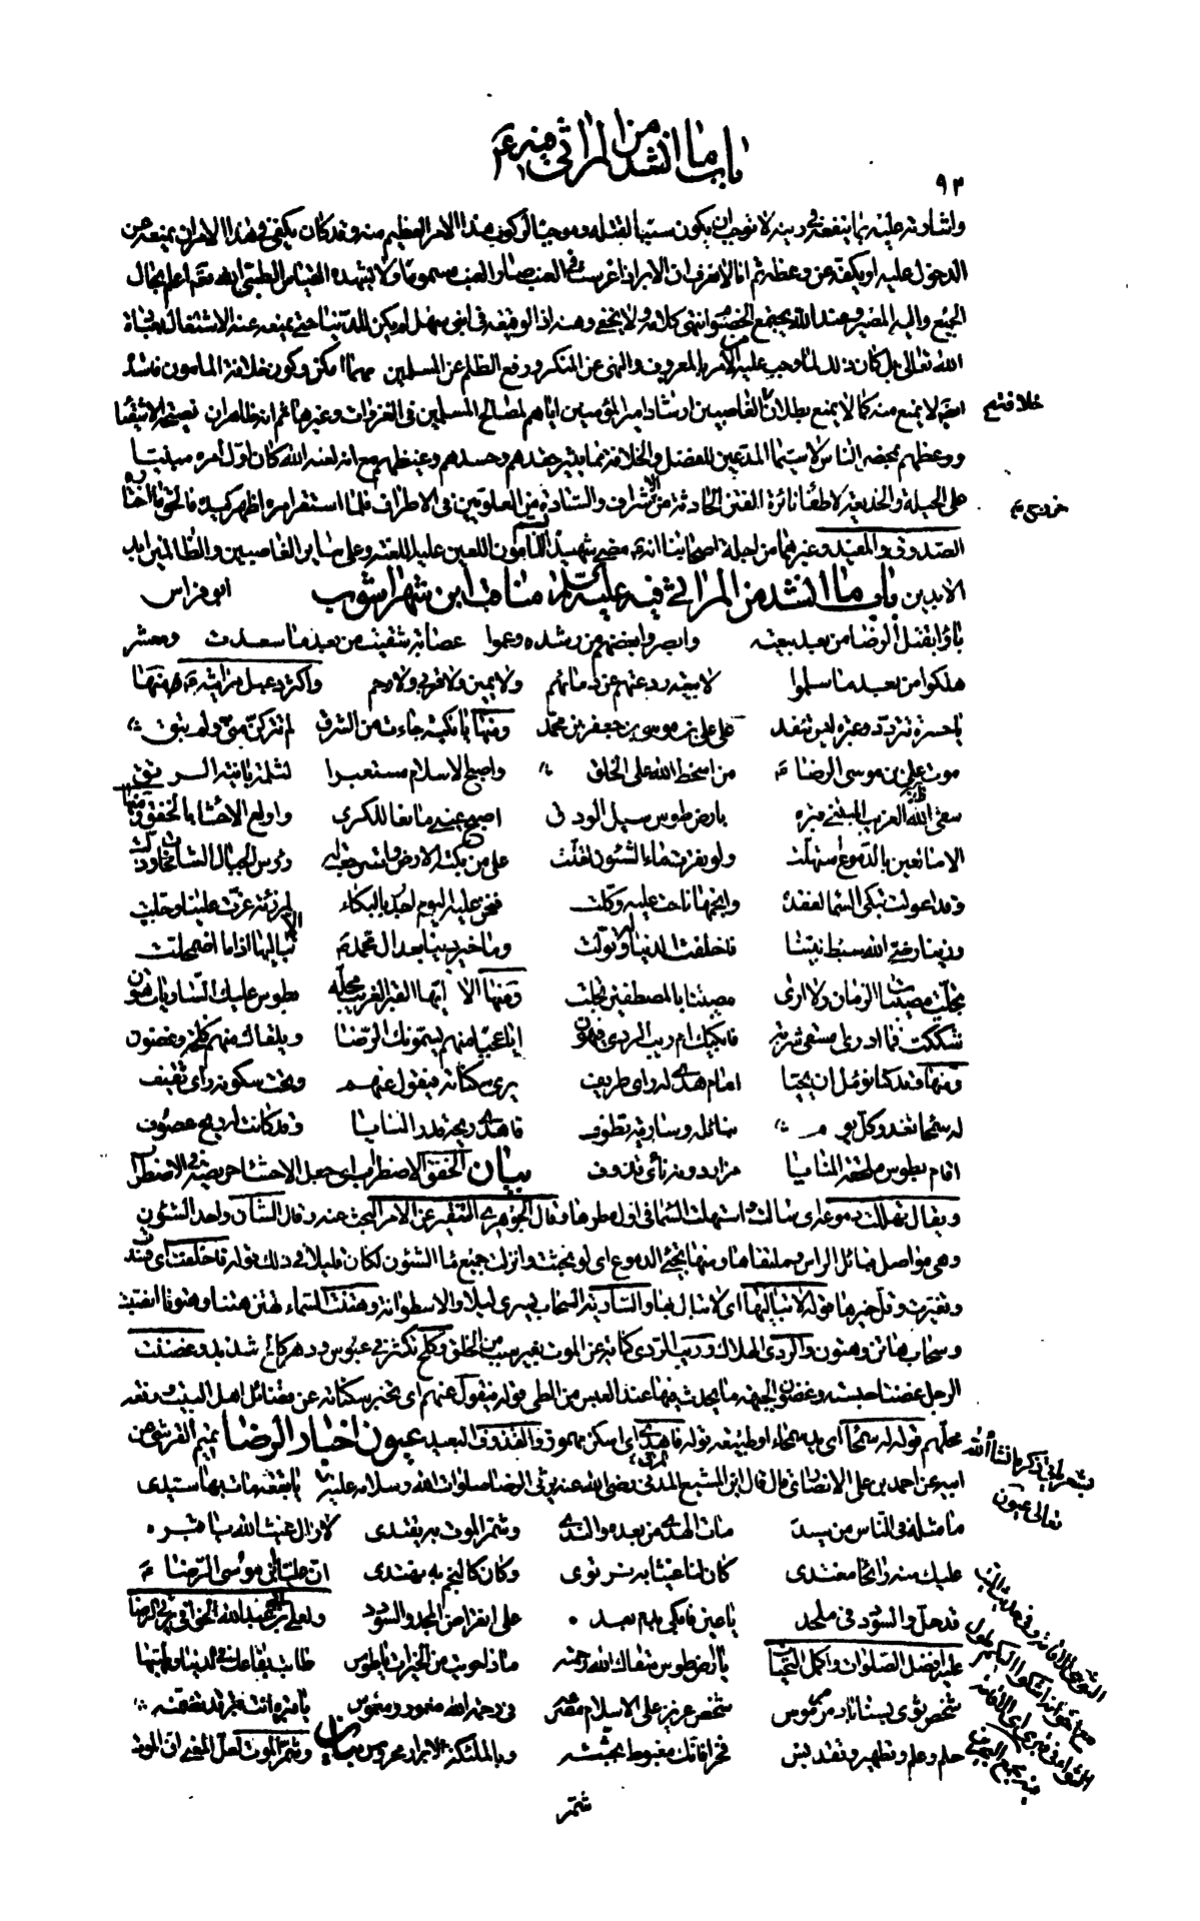 باب ما انشد من المراثي فيه ع
٩٣
واشارته عليه بما ينفعه في دينه لا يوجب ان يكون سببا لقتله وموجبا لركوب هذا الامر العظيم منه وقد كان يكفي في هذا الامر ان يمنعه عن
الدخول عليه او يكفه عن وعظه ثم انا لا نعرف ان الابر اذا غرست في العنب صار العنب مسموما ولا يشهد له القياس الطبي والله تعالى اعلم بحال
الجميع واليه المصير وعند الله يجتمع الخصوم انتهى كلامه ولا يخفى وهنه اذ الوقيعة في ابني سهل لم يكن للدنيا حتى يمنعه عنه الاشتغال بعبادة
الله تعالى بل كان ذلك لما وجب عليه من الامر بالمعروف والنهي عن المنكر ورفع الظلم عن المسلمين مهما امكن وكون خلافة المامون فاسدة
ايضا لا يمنع منه كما لا يمنع بطلان الغاصبين ارشاد امير المؤمنين اياهم لمصالح المسلمين في الغزوات وغيرها ثم انه ظاهر ان نصيحة الاشقياء
خلافة
ووعظهم بمحضر الناس لا سيما المدعين للفضل والخلافة مما يثير حقدهم وحسدهم وغيظهم مع انه لعنه الله كان اول امره مبنيا
على الحيلة والخديعة لاطفاء نائرة الفتن الحادثة من خروج الاشراف والسادة من العلويين في الاطراف فلما استقر امره اظهر كيده فالحق ما اختاره
خروج
الصدوق والمفيد وغيرهما من اجلة اصحابنا انه ع مضى شهيدا بسم المامون اللعين عليه اللعنة وعلى سائر الغاصبين والظالمين ابد
الابدين باب ما انشد من المراثي فيه عليه السلام مناقب ابن شهراشوب ابو فراس
باؤا بقتل الرضا من بعد بيعته وابصروا بعضهم من رشده وعموا عصابة شقيت من بعد ما سعدت ومعشر
هلكوا من بعد ما سلموا لا بيعة ردعتهم عن دمائهم ولا يمين ولا قربى ولا رحم واكثر دعبل مراثيه ع فمنها
يا حسرة تتردد وعبرة ليس تنفد على علي بن موسى بن جعفر بن محمد ومنها يا نكبة جاءت من الشرق لم تتركي مني ولم تبق
موت علي بن موسى الرضا من اسخط الله على الخلق واصبح الاسلام مستعبرا لثلمة باينة الرتق
سقى الله الغريب المبتنى قبره بارض طوس سيل الودق اصبح عيني مانعا للكرى واولع الاحشاء بالخفق ومنها
الا ما لعين بالدموع استهلت ولو نفدت ماء الشئون لقلت على من بكته الارض واسترجعت له رؤس الجبال الشامخات وذلت
وقد اعولت تبكي السماء لفقده وانجمها ناحت عليه وكلت فنحن عليه اليوم اجدر بالبكاء لمرزئة عزت علينا وجلت
رزينا رضي الله سبط نبينا فاخلفت الدنيا له وتولت وما خير دنيا بعد ال محمد الا لا نباليها اذا ما اضمحلت
تجلت مصيبات الزمان ولا ارى مصيبتنا بالمصطفين تجلت ومنها الا ايها القبر الغريب محله بطوس عليك الساريات هتون
شككت فما ادري امسقى شربة فابكيك ام ريب الردى فيهون ايا عجبا منهم يسمونك الرضا ويلقاك منهم كلحة وغضون
ومنها وقد كنا نؤمل ان يحيا امام هدى له راي طريف يرى سكناته فيقول عنهم وتحت سكونه راي ثقيف
له سمحاء تغدو كل يوم بنائله وسارية تطوف فاهدى ريحه قدر المنايا وقد كانت له ريح عصوف
اقام بطوس ملحفة المنايا مزار دونه نأي قذوف بيان الخفق الاضطراب اي جعل الاحشاء حريصة في الاضطراب
ويقال تهللت دموعه اي سالت واستهلت السماء في اول مطرها وقال الجوهري التنقير عن الامر البحث عنه وقال الشأن واحد الشئون
وهي مواصل قبائل الراس وملتقاها ومنها تجئ الدموع اي لو بحثت وانزلت جميع ماء الشئون لكان قليلا في ذلك قوله فاخلفت اي فسدت
وتغيرت وقل خيرها قوله لا نباليها اي لا نبال بها والسارية السحاب يسري ليلا والاسطوانة وهتنت السماء تهتن هتنا وهتونا انصبت
وسحاب هاتن وهتون والردى الهلاك وريب الردى كناية عن الموت بغير سبب من الخلق وكلح تكشر في عبوس ودهر كالح شديد وغضنت
الرجل غضنا حبسته وغضون الجبهة ما يحدث فيها عند العبس من الطي قوله فيقول عنهم اي تخبر سكناته عن فضائل اهل البيت ورفعة
محلهم قوله له سمحاء اي يد سمحاء او طبيعة قوله فاهدى اي اسكن مهموز والقذوف البعيد عيون اخبار الرضا تميم القرشي عن
ابيه عن احمد بن علي الانصاري قال قال ابن المشيع المدني رضي الله عنه يرثي الرضا صلوات الله وسلامه عليه يا بقعة مات بها سيدي
ما مثله في الناس من سيد مات الهدى من بعده والندى وشمر الموت به يقتدي لا زال غيث الله يا قبره
عليك منه رائحا مغتدي كان لنا غيثا به نرتوي وكان كالنجم به نهتدي ان عليا بن موسى الرضا
قد حل والسؤدد في ملحد يا عين فابكي بدم بعده على انقراض المجد والسؤدد ولعلي بن ابي عبد الله الخوافي يرثي الرضا
عليه افضل الصلوات واكمل التحيات يا ارض طوس سقاك الله رحمته ماذا حويت من الخيرات يا طوس طابت بقاعك في الدنيا وطيبها
شخص ثوى بسناباد مرموس شخص عزيز على الاسلام مصرعه في رحمة الله مغمور ومغموس يا قبره انت قبر قد تضمنه
حلم وعلم وتطهير وتقديس فخرا فانك مغبوط بجثته وبالملئكة الابرار محروس بيان وشمر الموت لعل المعنى ان الموت
شمر